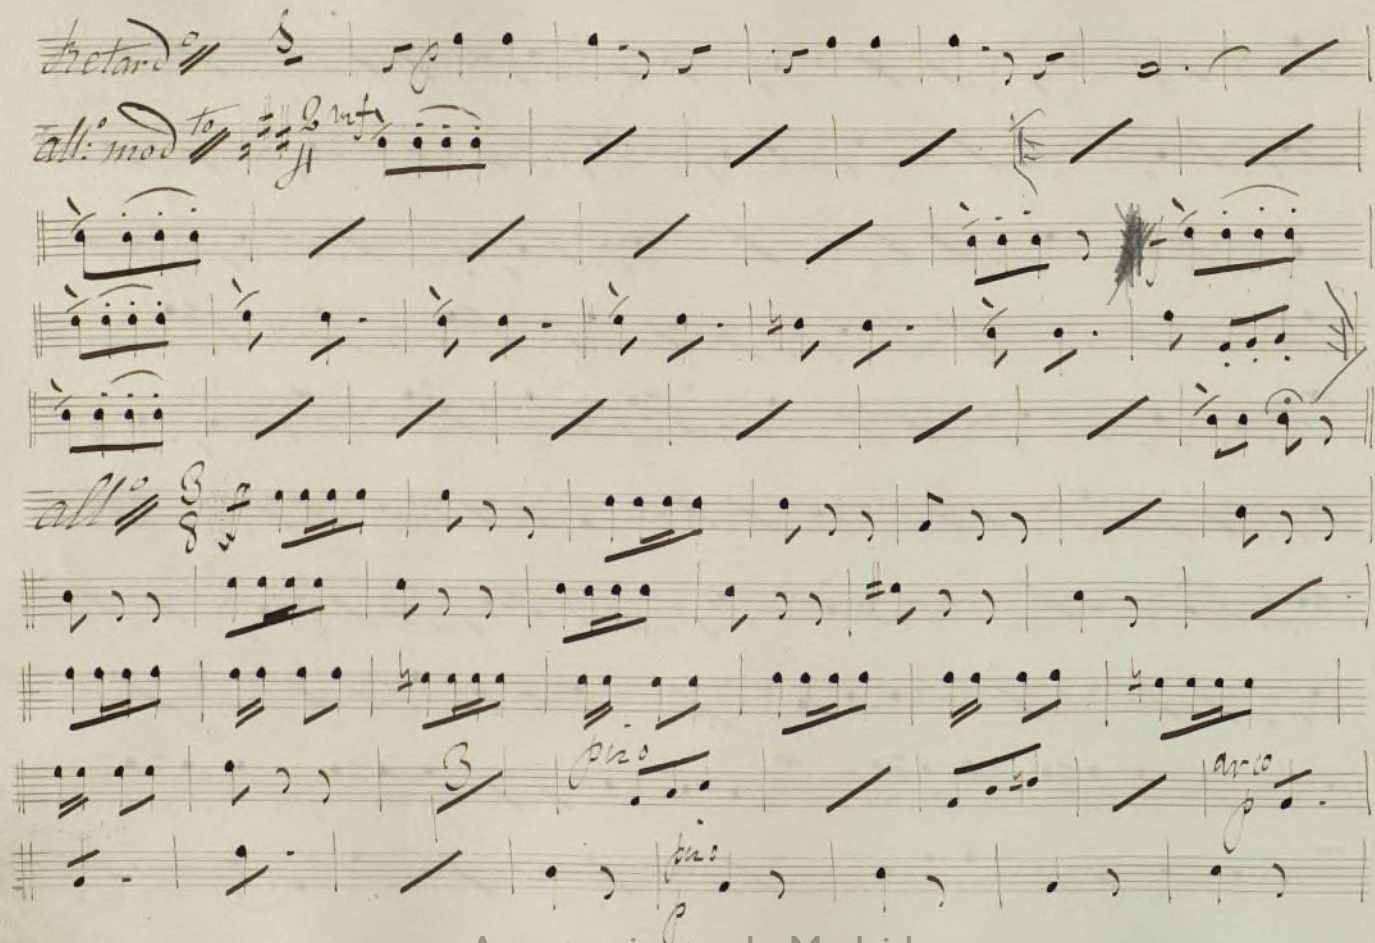 Retard.o
all:o mod.to 2 4 mf
all.o 3 8
3 pizo arco p
pizo
p